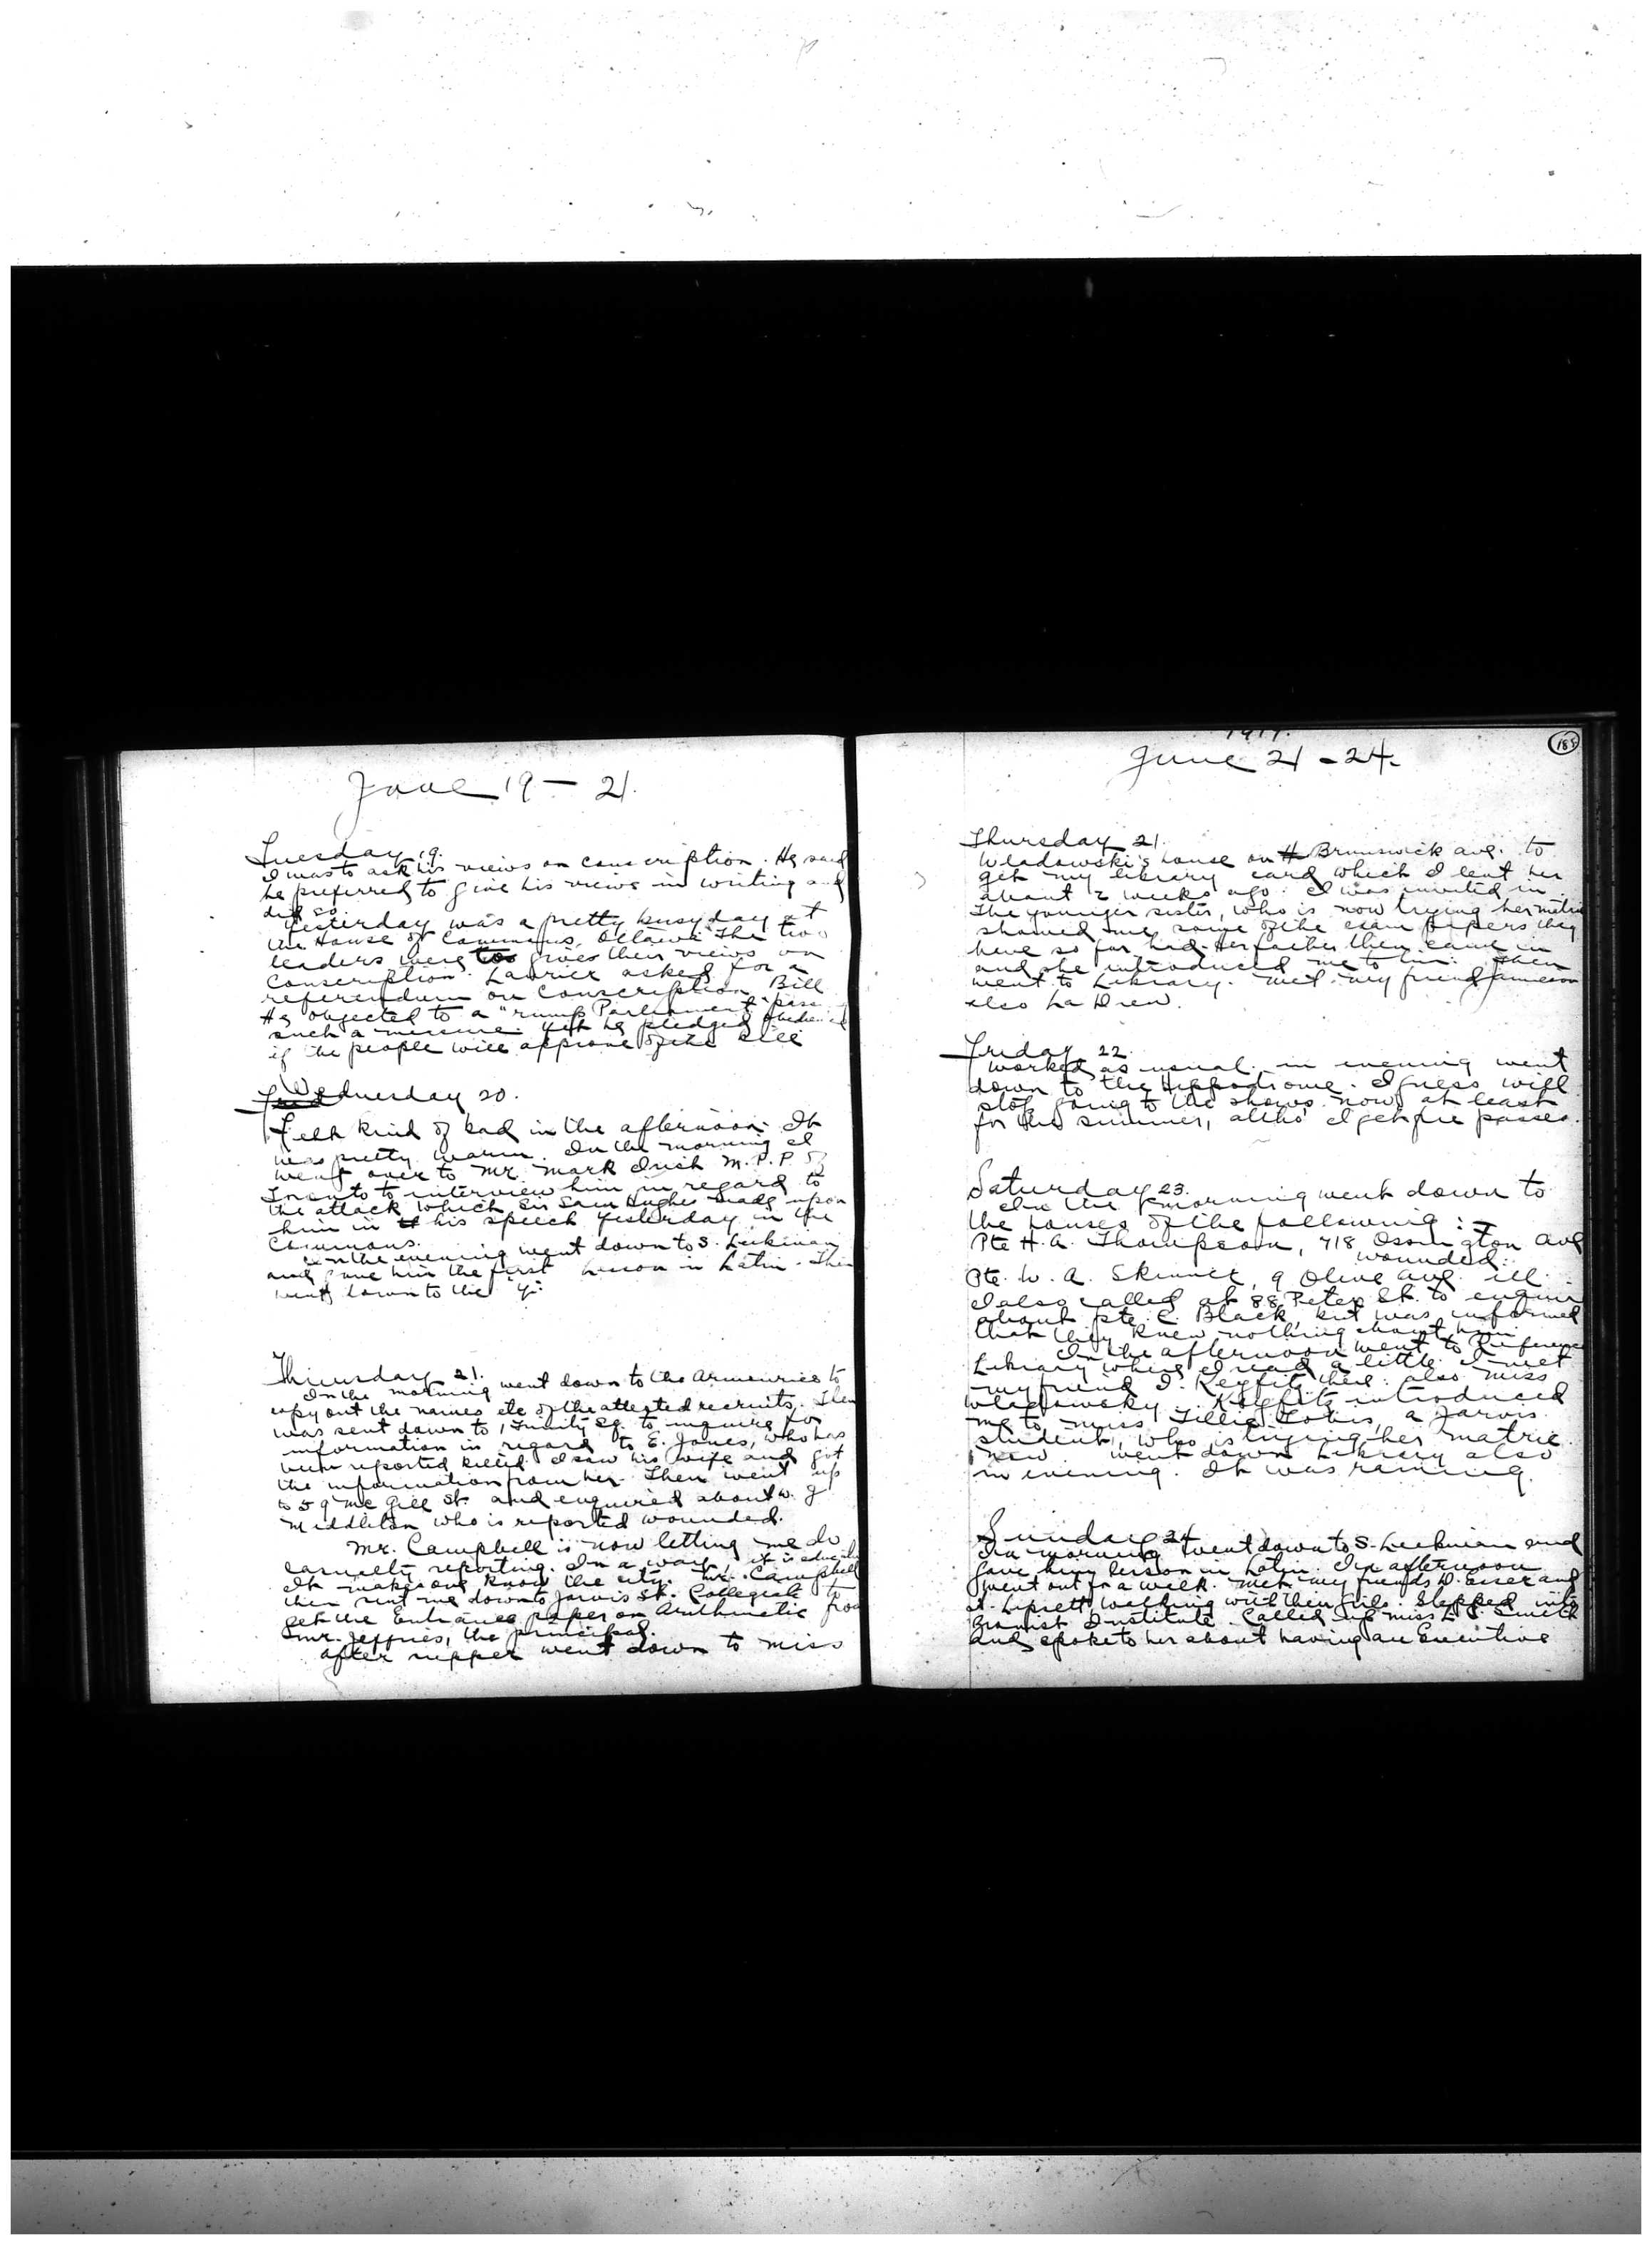 June 19 - 21.
Tuesday 19.
I was to ask his views on conscription. He said
he preferred to give his views in writing and
did so.
Yesterday was a pretty busy day at
the House of Commons, Ottawa. The two
leaders were to gives their views on
Conscription. Laurier asked for a
referendum on Conscription Bill
He objected to a "rump Parliament" pass
such a measure. Yet he pledged obedience
if the people will approve of the bill
Wednesday 20.
Felt kind of bad in the afternoon. It
was pretty warm. In the morning I
went over to Mr. Mark Irish M.P.P. of
Toronto to interview him in regard to
the attack which Sir Sam Hughes made upon
him in his speech yesterday in the
Commons.
In the evening went down to S. Luckman
and gave him the first lesson in Latin. Then
went down to the "Y".
Thursday 21.
In the morning went down to the Armouries to
copy out the names etc of the attested recruits. Then
was sent down to 1, Trinity Sq. to inquire for
information in regard to E. Jones, who has
been reported killed. I saw his wife and got
the information from her. Then went up
to 59 McGill St. and enquired about W. J
Middleton who is reported wounded.
Mr. Campbell is now letting me do
casualty reporting. In a way, it is
It makes one know the city. Mr. Campbell
then sent me down to Jarvis St. Collegiate to
get the Entrance paper on Arithmetic from
Mr. Jeffries, the principal.
After supper went down to Miss
1917.
188
June 21 - 24.
Thursday 21.
Wladowski's house on Brunswick ave. to
get my library card which I lent her
about 2 weeks ago. I was invited in.
The younger sister, who is now trying her matric
showed me some of the exam papers they
have so far had. Her father then came in
and she introduced me to him. Then
went to Library. Met my friend Jameson
also La Drew.
Friday 22.
Worked as usual, in evening went
down to the Hippodrome. I guess will
stop going to the shows now, at least
for the summer, altho' I get free passes.
Saturday 23.
In the morning went down to
the houses of the following:-
Pte H. A. Thompson, 718 Ossington Ave
wounded.
Pte. W. A. Skinner, 9 Olive Ave. ill.
I also called at 88 Peter St. to enquire
about pte C. Black, but was informed
that they knew nothing about him.
In the afternoon went to Reference
Library where I read a little. I met
my friend I. Keyfitz there. also Miss
Wladowsky. Keyfitz introduced
me to Miss Tillie, a Jarvis
student, who is trying her matric
now. Went down Library also
in evening. It was raining.
Sunday 24
In morning went down to S. Luckman and
gave him lesson in Latin. In afternoon
went out for a walk. Met my friends D. Eiser and
Lipsett walking with their girls. Stepped into
Zionist Institute. Called up Miss L. Smith
and spoke to her about having an Executive